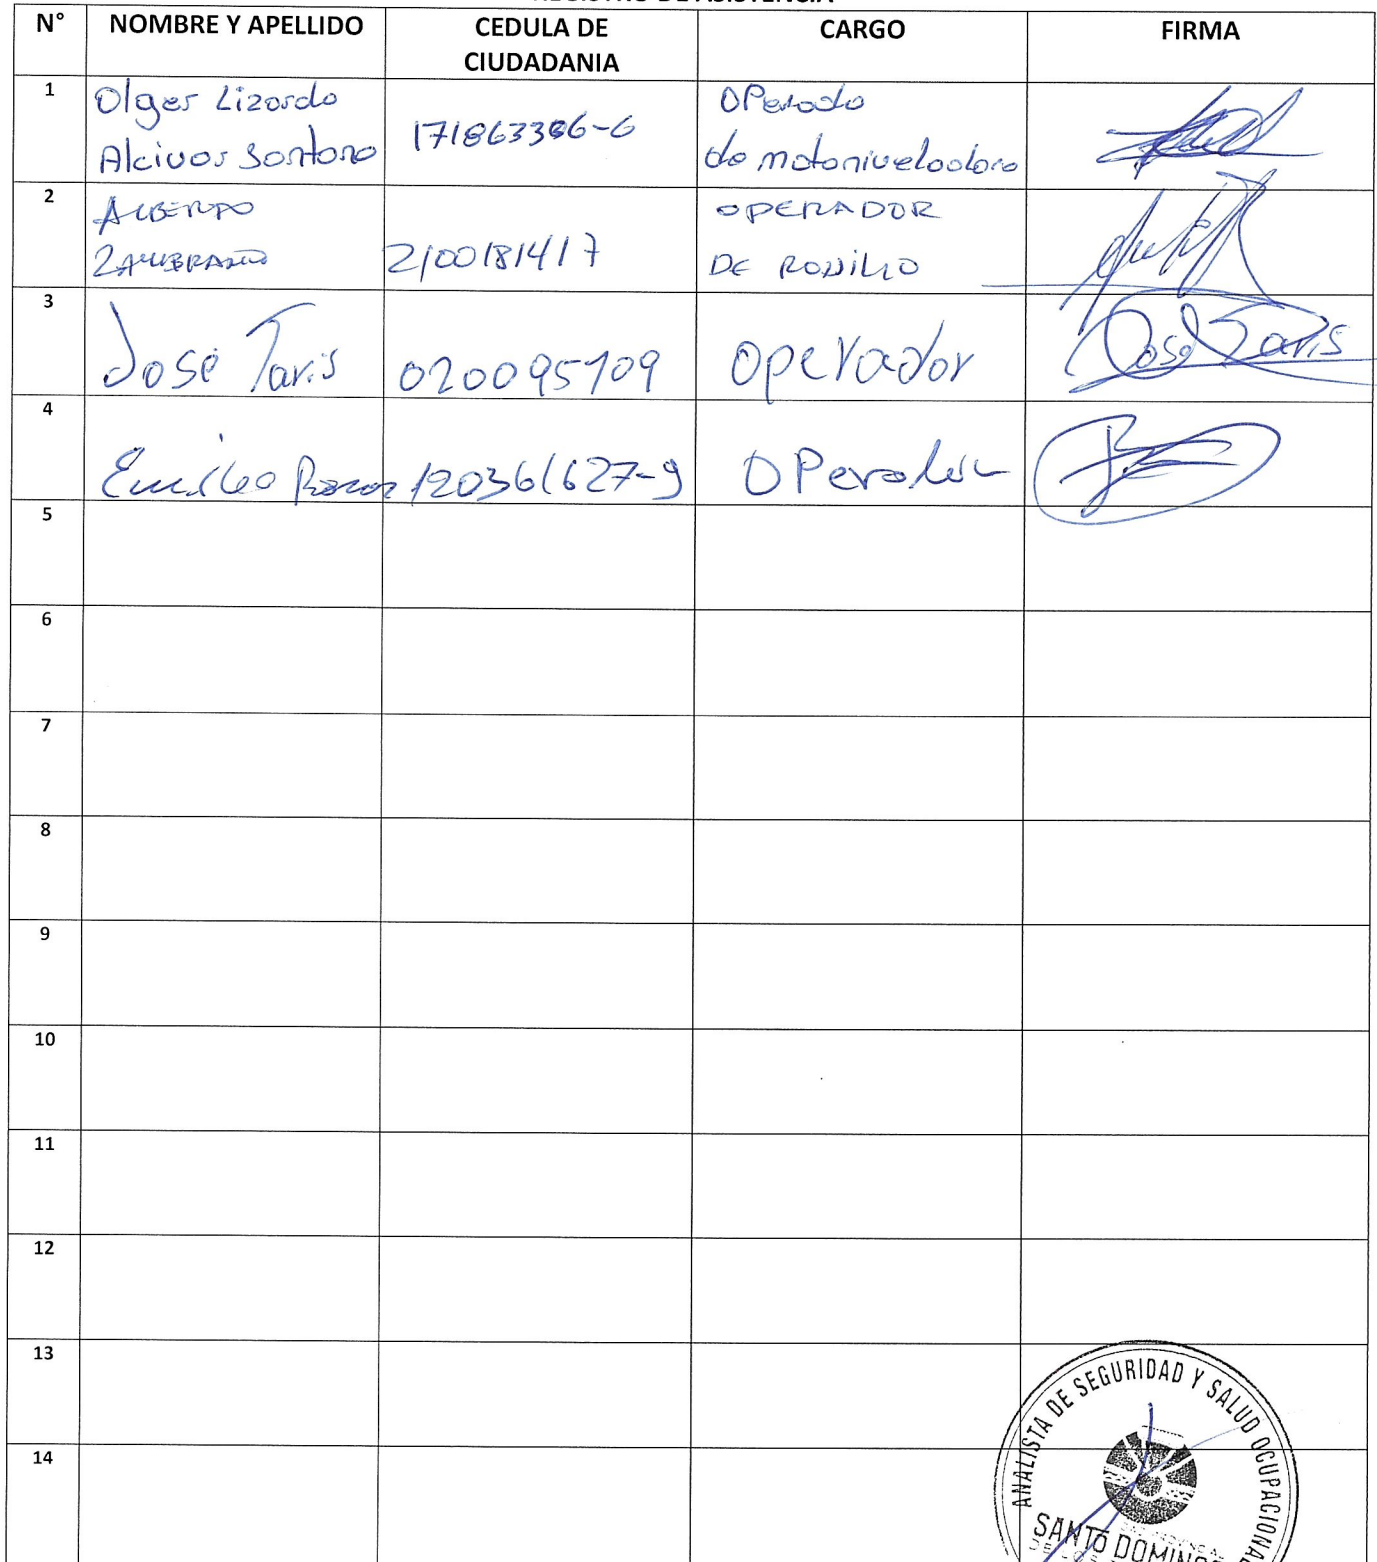 REGISTRO DE ASISTENCIA
N° NOMBRE Y APELLIDO CEDULA DE CIUDADANIA CARGO FIRMA
1 Olger Lizardo Alcivar Santana 171863366-6 OPerado de motoniveladora
2 ALBERTO ZAMBRANO 2100181417 OPERADOR DE RODILLO
3 José Taris 020095109 operador José Taris
4 Emilio 120361627-9 OPerador
5
6
7
8
9
10
11
12
13
14
ANALISTA DE SEGURIDAD Y SALUD OCUPACIONAL
SANTO DOMINGO